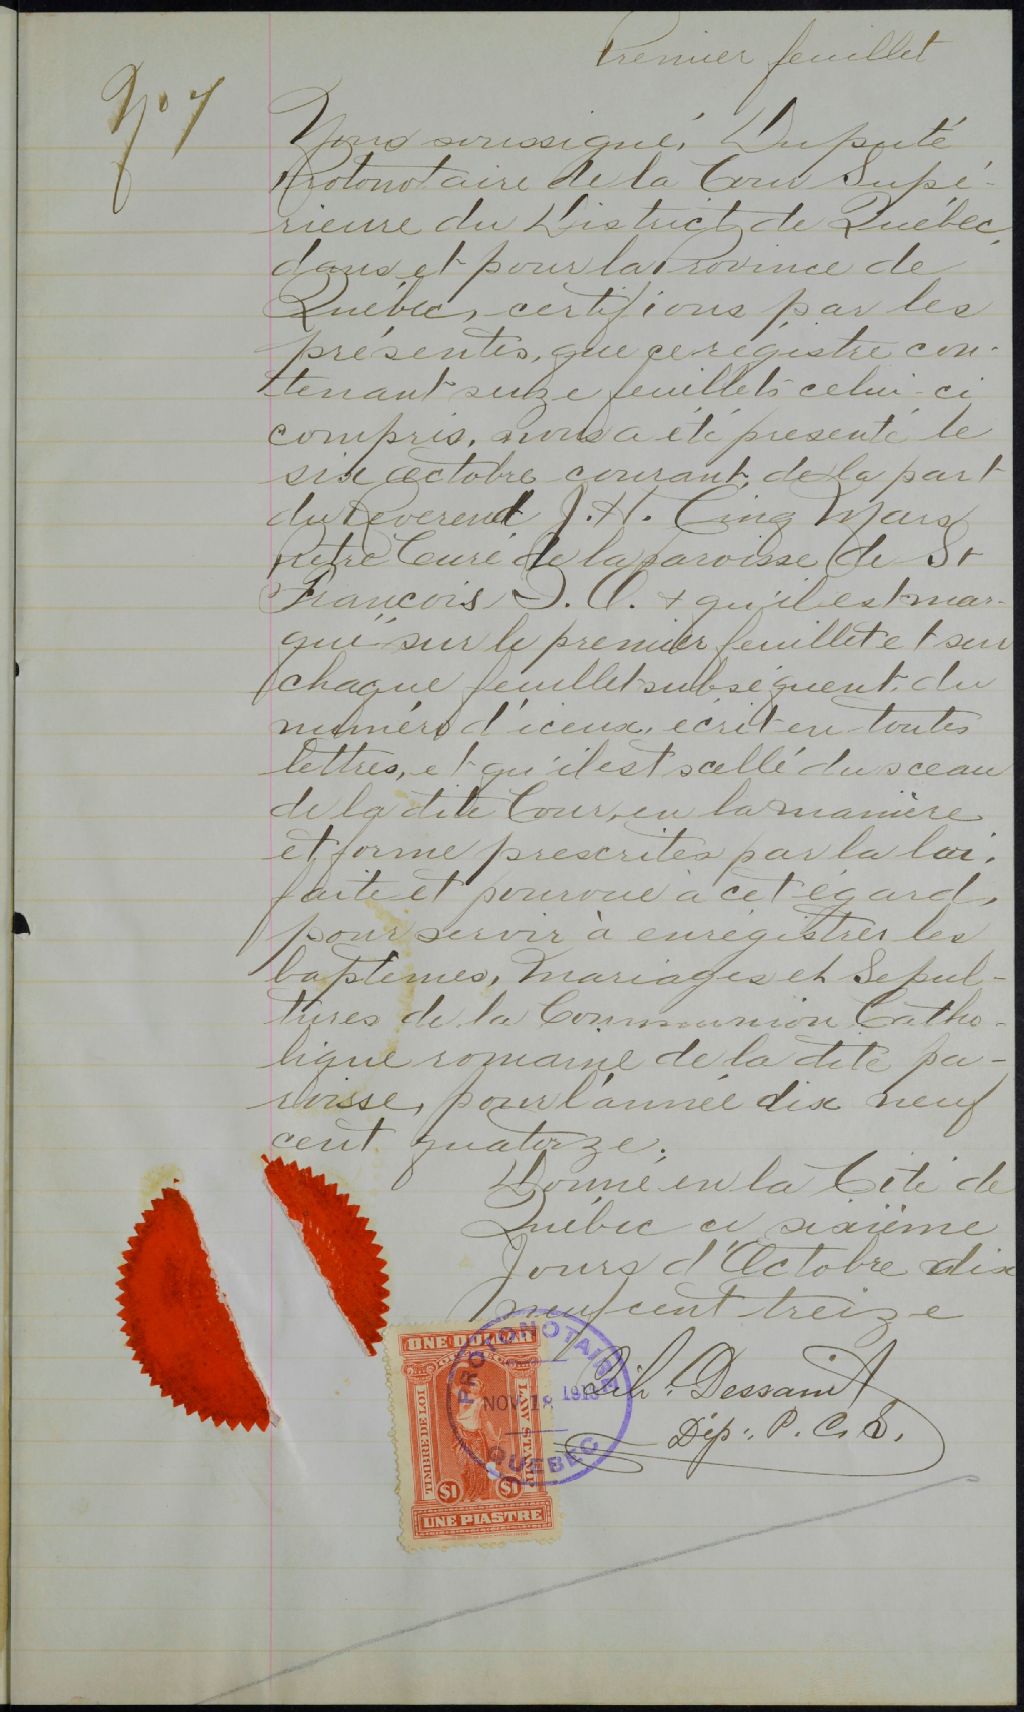 Premier feuillet
No 7
Nous soussigné, Député
Protonotaire de la Cour Supé-
rieure du District de Québec,
dans et pour la Province de
Québec, certifions par les
présentes, que ce régistre con-
tenant seize feuillets celui-ci
compris, nous a été présenté le
six octobre courant, de la part
du Reverend J. H. Cinq Mars
Ptre Curé de la paroisse de St
François I. O. + qu'il est mar-
qué sur le premier feuillet et sur
chaque feuillet subséquent, du
numéro d'iceux, écrit en toutes
lettres, et qu'il est scellé du sceau
de la dite Cour, en la manière
et forme prescrites par la loi,
faite et pourvue à cet égard,
pour servir à enrégistrer les
baptêmes, Mariages et Sepul-
tures de la Communion Catho-
lique romaine de la dite pa-
roisse, pour l'année dix neuf
cent quatorze.
Donné en la Cité de
Québec ce sixième
Jours d'Octobre dix
neuf cent treize
Dessaint
Dép: P. C. S.
ONE DOLLAR
TIMBRE DE LOI
LAW STAMP
$1 $1
UNE PIASTRE
PROTONOTAIRE
NOV 18 1913
QUEBEC